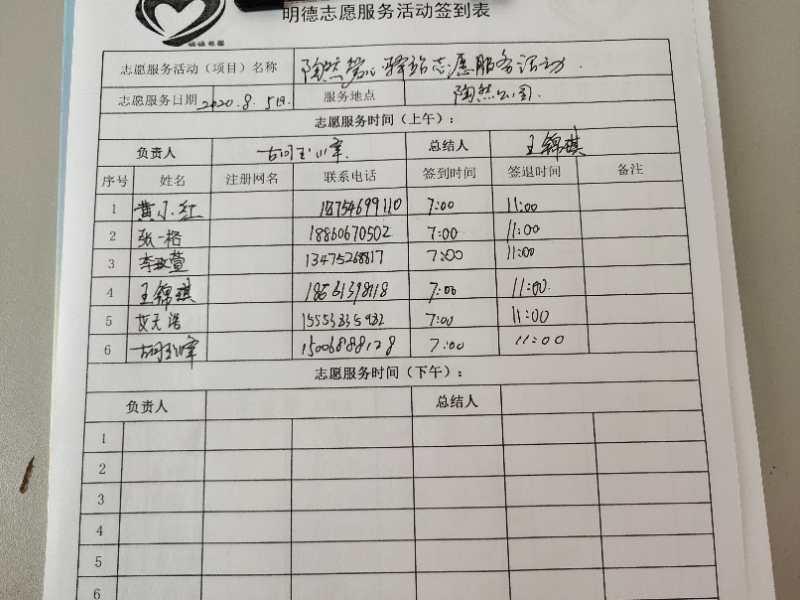 明德志愿服务活动签到表
志愿服务活动（项目）名称 陶然爱心驿站志愿服务活动.
志愿服务日期 2020.8.5日. 服务地点 陶然公园.
志愿服务时间（上午）：
负责人 总结人 王锦琪
序号 姓名 注册网名 联系电话 签到时间 签退时间 备注
1 黄小红 18754699110 7:00 11:00
2 张一格 18860670502 7:00 11:00
3 李政萱 13475268817 7:00 11:00
4 王锦琪 18561398118 7:00 11:00.
5 7:00 11:00
6 15006888128 7:00 11:00
志愿服务时间（下午）：
负责人 总结人
1
2
3
4
5
6